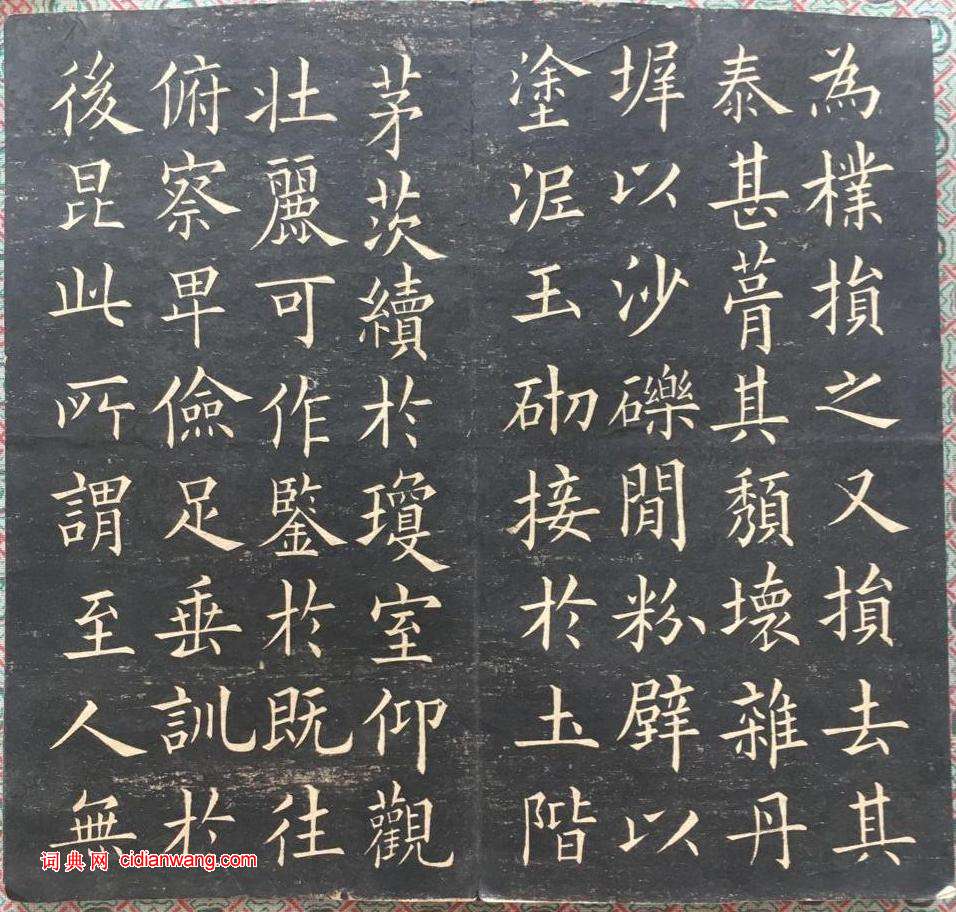 為樸損之又損去其
泰甚葺其頹壞雜丹
墀以沙礫閒粉壁以
塗泥玉砌接於土階
茅茨續於瓊室仰觀
壯麗可作鑒於既往
俯察卑儉足垂訓於
後昆此所謂至人無
词典网 cidianwang.com